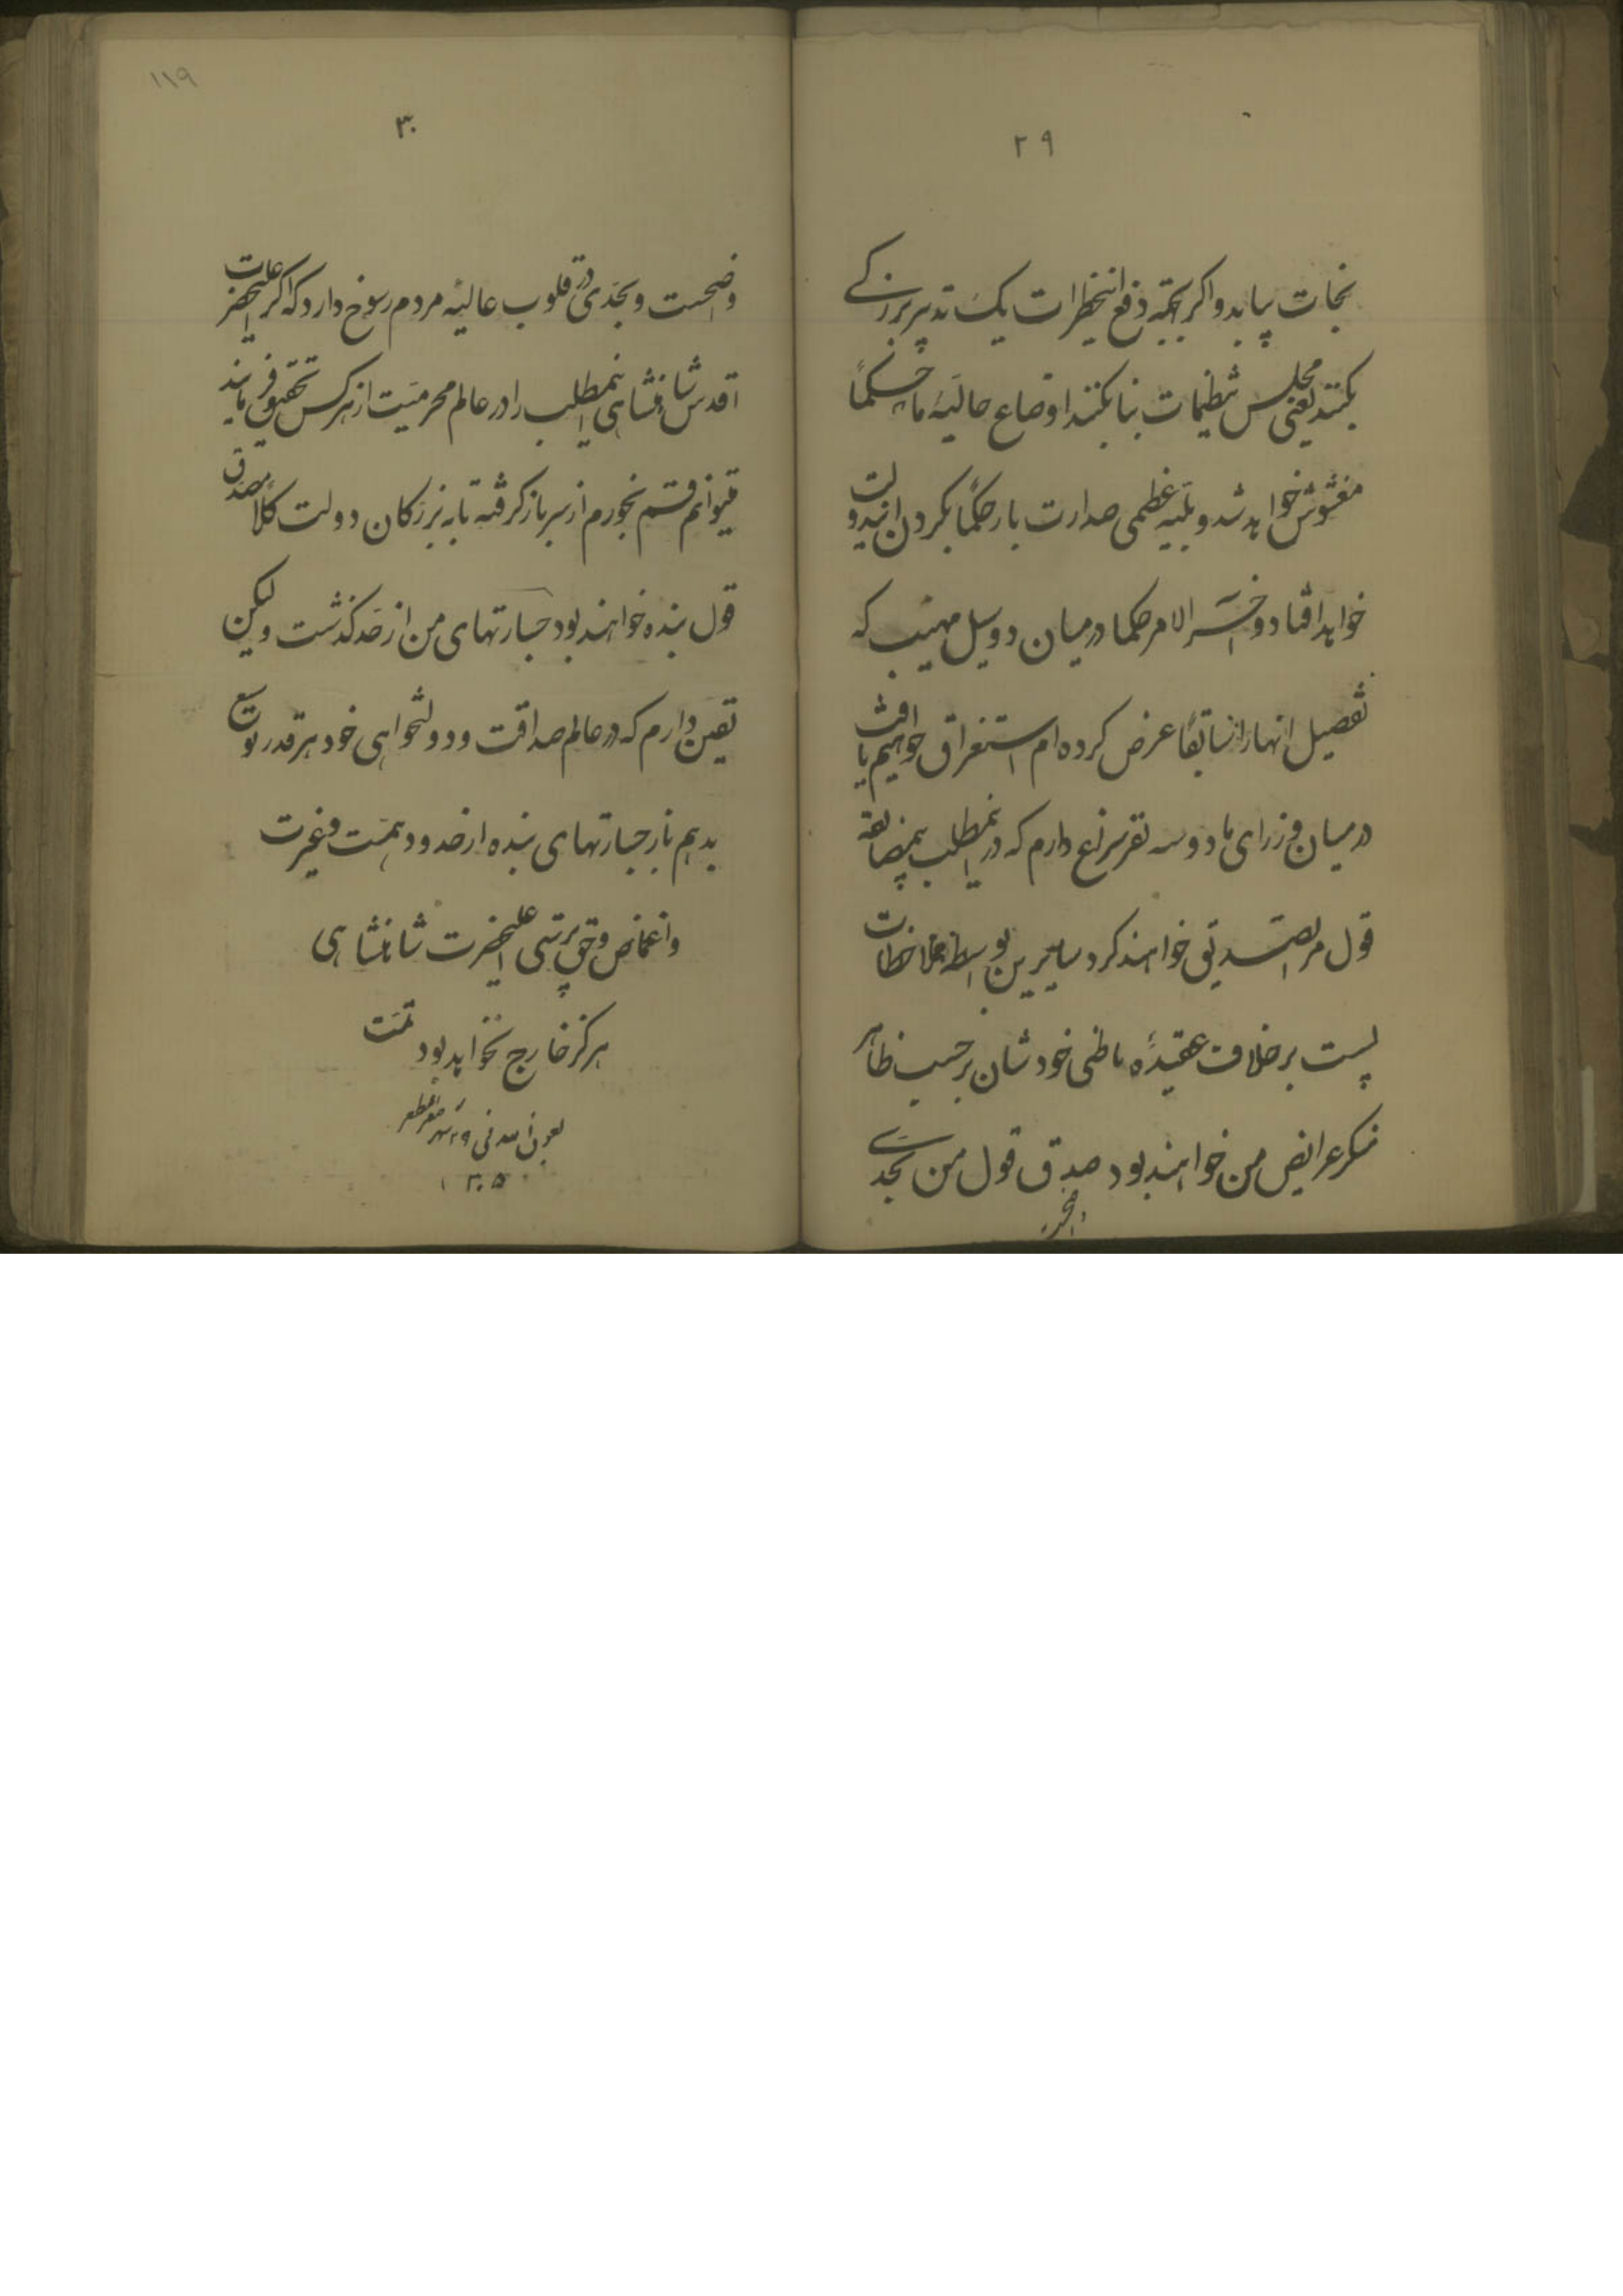 ۲۹
نجات بیابد و اگر بجهة دفع اینخطرات یک تدبیر بزرگی
نکنند یعنی مجلس تنظیمات بنا نکنند اوضاع حالیهٔ ما حکماً
مغشوش خواهد شد و بلیه عظمی صدارت باز حکماً بگردن ایندولت
خواهد افتاد و آخر الامر حکما در میان دو سیل مهیب که
تفصیل انها را سابقاً عرض کرده ام استغراق خواهیم یافت
در میان وزرای ما دو سه نفر سراغ دارم که در اینمطلب بیمضایقه
قول مرا تصدیق خواهند کرد سایرین بواسطه ملاحظات
پست بر خلاف عقیدهٔ باطنی خودشان بر حسب ظاهر
منکر عرایض من خواهند بود صدق قول من بحدی
۱۱۹
۳۰
واضحست و بحدی در قلوب عالیهٔ مردم رسوخ دارد که اگر اعلیحضرت
اقدس شاهنشاهی اینمطلب را در عالم محرمیت از هر کس تحقیق فرمایند
میتوانم قسم بخورم از سرباز گرفته تا به بزرگان دولت کلاً مصدق
قول بنده خواهند بود جسارتهای من از حد گذشت ولیکن
یقین دارم که در عالم صداقت و دولتخواهی خود هر قدر توسیع
بدهم باز جسارتهای بنده از حدود همت و غیرت
و اغماض و حق پرستی اعلیحضرت شاهنشاهی
هرگز خارج نخواهد بود تمت
بعون الله فی ۲۹ شهر صفر المظفر
۱۳۰۵